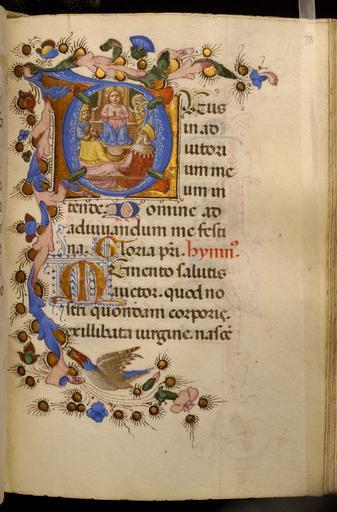 78
DEus
in ad
iutori
um me
um in
tende. Domine ad
adiuuandum me festi
na. Gloria pr̃i. hymn⁹.
Memento salutis
auctor. quod no
stri quondam corporis.
ex illibata uirgine. nascẽ